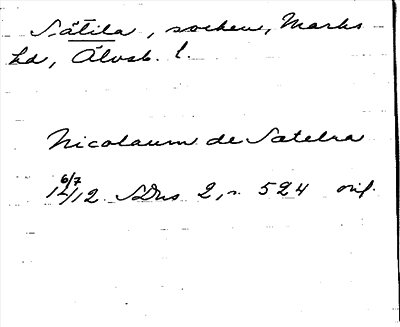 Sätila, socken, Marks
hd, Älvsb. l.
Nicolaum de Satelra
6/7
1412 SDns 2, s. 524 orig.